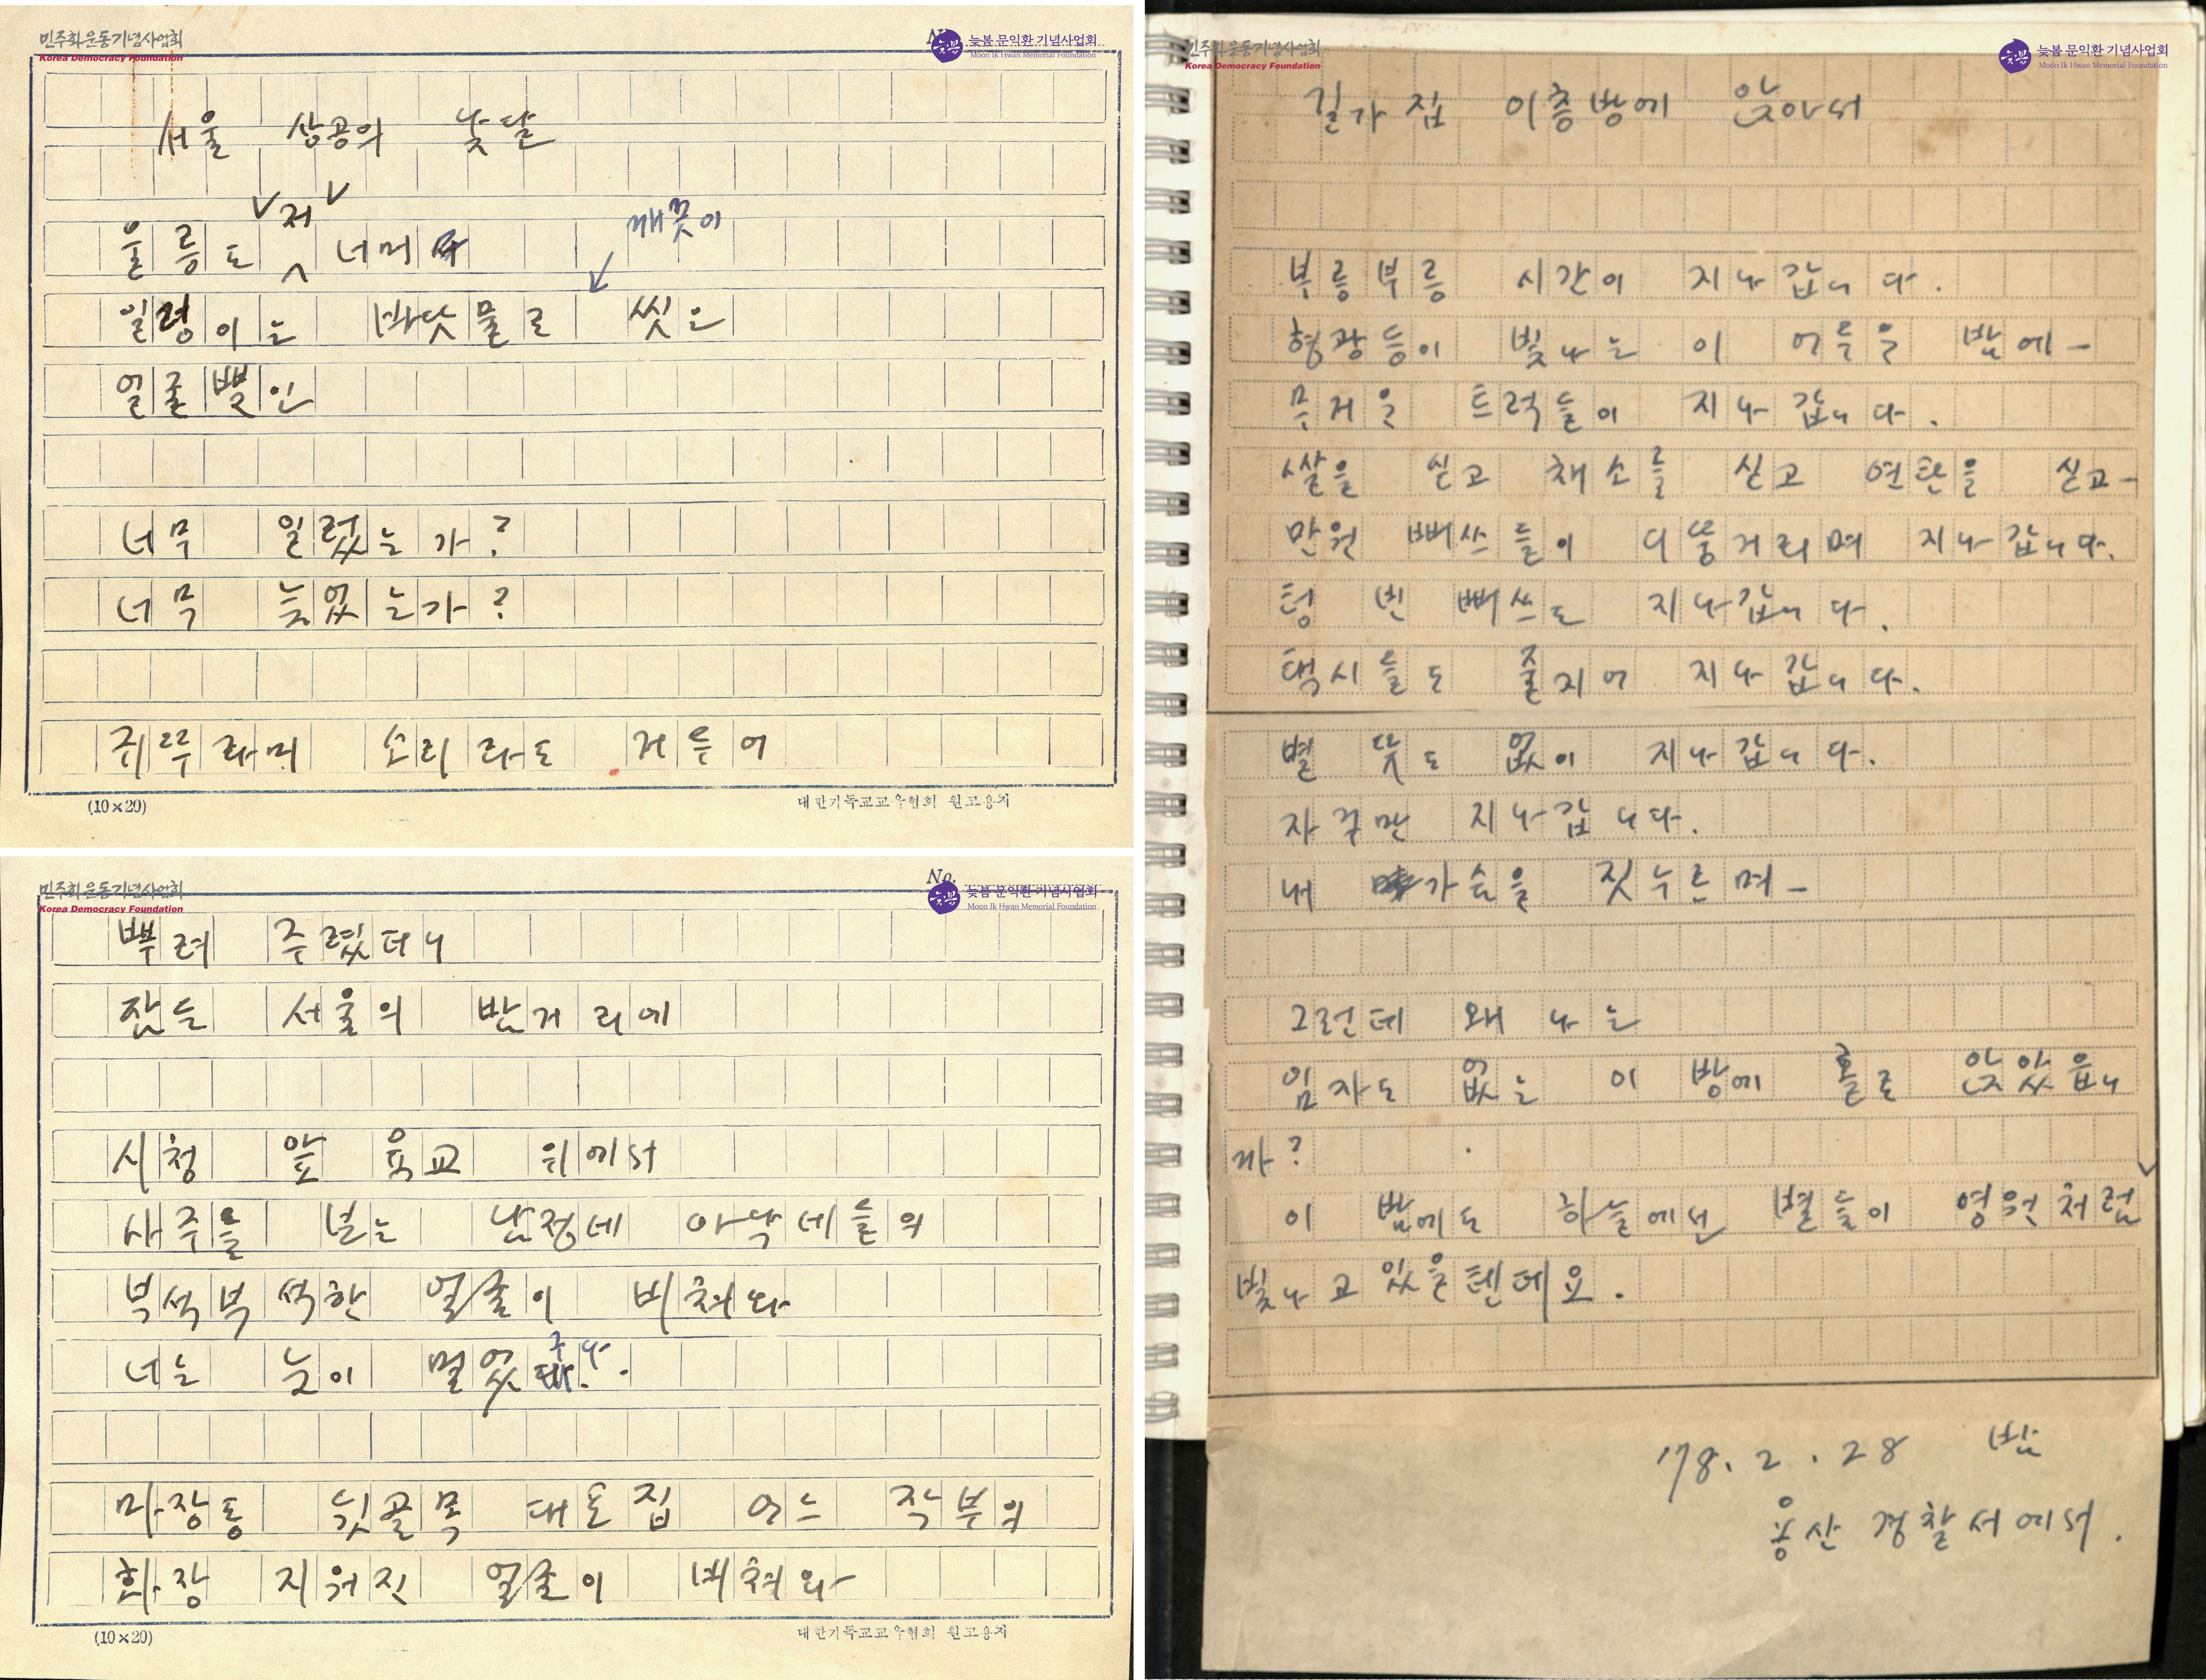 민주화운동기념사업회
Korea Democracy Foundation
늦봄 문익환 기념사업회
Moon Ik Hwan Memorial Foundation
서울 상공의 낮달
저
깨끗이
울릉도 너머
일렁이는 바닷물로 씻은
얼굴빛인
너무 일렀는가?
너무 늦었는가?
귀뚜라미 소리라도 거들어
(10×20)
대한기독교교육협회 원고용지
민주화운동기념사업회
Korea Democracy Foundation
No.
늦봄 문익환 기념사업회
Moon Ik Hwan Memorial Foundation
뿌려 주렸더니
잠든 서울의 밤거리에
시청 앞 육교 위에서
사주를 보는 남정네 아낙네들의
부석부석한 얼굴이 비쳐와
구나
너는 눈이 멀었 .
마장동 뒷골목 대포집 어느 작부의
화장 지워진 얼굴이 비쳐와
(10×20)
대한기독교교육협회 원고용지
민주화운동기념사업회
Korea Democracy Foundation
늦봄 문익환 기념사업회
Moon Ik Hwan Memorial Foundation
길가 집 이층방에 앉아서
부릉부릉 시간이 지나갑니다.
형광등이 빛나는 이 어두운 밤에—
무거운 트럭들이 지나갑니다.
쌀을 싣고 채소를 싣고 연탄을 싣고—
만원 뻐쓰들이 디뚱거리며 지나갑니다.
텅 빈 뻐쓰도 지나갑니다.
택시들도 줄지어 지나갑니다.
별 뜻도 없이 지나갑니다.
자꾸만 지나갑니다.
내 가슴을 짓누르며—
그런데 왜 나는
임자도 없는 이 방에 홀로 앉았읍니
까?
이 밤에도 하늘에선 별들이 영원처럼
빛나고 있을텐데요.
'78. 2. 28 밤
용산 경찰서에서.